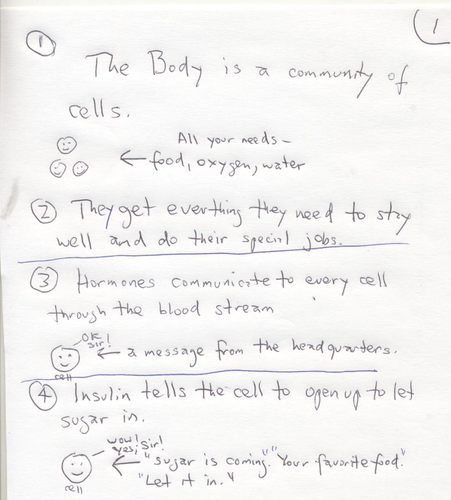 1
① The Body is a community of
cells.
All your needs -
← food, oxygen, water
② They get everthing they need to stay
well and do their special jobs.
③ Hormones communicate to every cell
through the blood stream
OK
sir!
← a message from the headquarters.
cell
④ Insulin tells the cell to open up to let
sugar in.
wow!
yes, Sir!
← "sugar is coming." "Your favorite food."
"Let it in."
cell